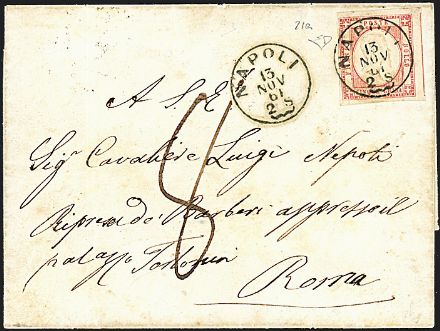 21a
NAPOLI
13
NOV
61
2 S
NAPOLI
13
NOV
61
2 S
A S. E.
8
Sigr Cavaliere Luigi Nepoti
Ripresa dei Barberi appresso il
palazzo
Roma